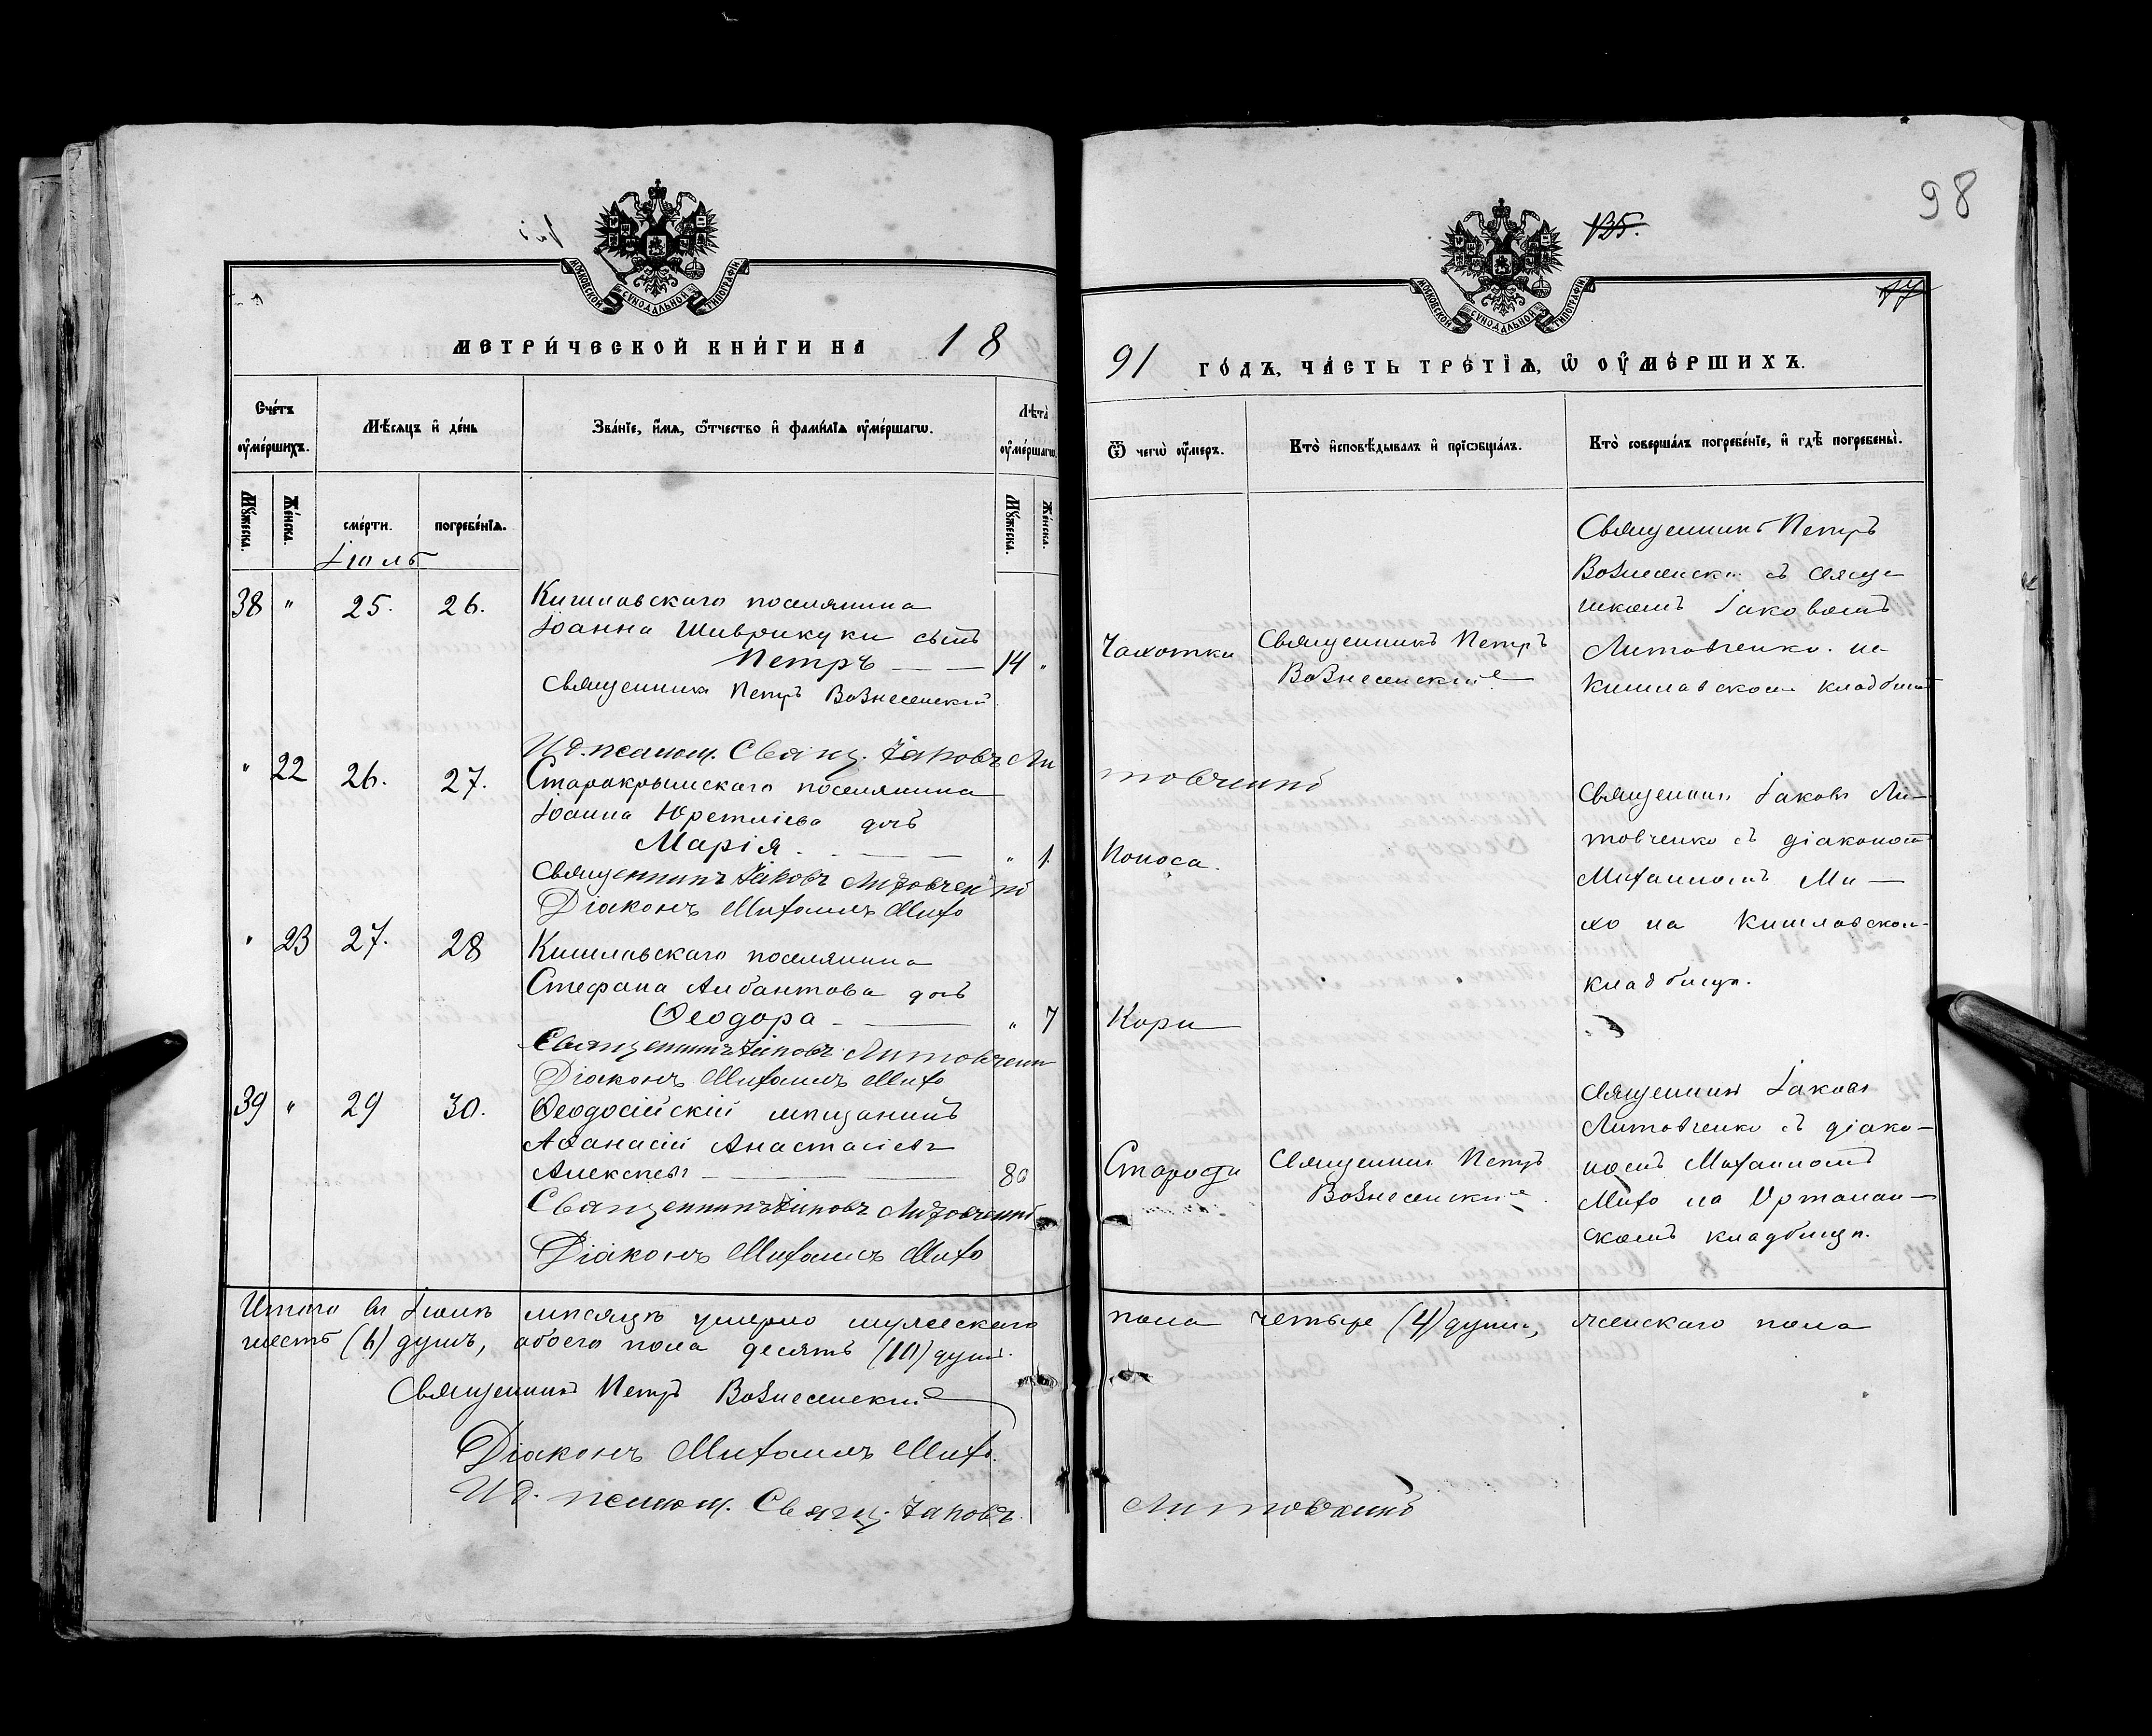 98
135.
77
МОСКОВСКОЙ СѴНОДАЛЬНОЙ ТИПОГРАФІИ
МОСКОВСКОЙ СѴНОДАЛЬНОЙ ТИПОГРАФІИ
МЕТРИ́ЧЕСКОЙ КНИ́ГИ НА 18
91 ГО́ДЪ, ЧА́СТЬ ТРЕ́ТІѦ, Ѡ҆ ОУ҆МЕ́РШИХЪ.
Сче́тъ оу҆ме́ршихъ.
Мѣ́сяцъ и҆ де́нь
Зва́нїе, и҆́мѧ, ѻ҆́тчество и҆ фами́лїѧ оу҆ме́ршагѡ.
Лѣта̀ оу҆ме́ршагѡ.
Ѿ чегѡ̀ оу҆́меръ.
Кто̀ и҆сповѣ́дывалъ и҆ прїѡбща́лъ.
Кто̀ соверша́лъ погребе́нїе, и҆ гдѣ̀ погребены̀.
Мꙋ́жеска.
Же́нска.
сме́рти.
погребе́нїѧ.
Мꙋ́жеска.
Же́нска.
Іюль
38 " 25. 26.
Кишлавскаго поселянина
Іоанна Шиврикуки сынъ
Петръ — — 14 "
Священникъ Петръ Вознесенскій
Чахотки
Священникъ Петръ
Вознесенскій
Священникъ Петръ
Вознесенскій съ священ
никомъ Іаковомъ
Литовченко на
Кишлавском кладбищѣ
Ид. псалом. Свящ. Іаковъ Ли
товченко
" 22 26. 27.
Старокрымскаго поселянина
Іоанна дочь
Марія — — " 1
Священникъ Іаковъ Литовченко
Діаконъ Михаилъ Михо
Поноса.
Священник Іаковъ Ли—
товченко съ діакономъ
Михаиломъ Ми—
хо на Кишлавском
кладбищѣ.
" 23 27. 28
Кишлавскаго поселянина
Стефана Албантова дочь
Ѳеодора — — " 7
Священникъ Іаковъ Литовченко
Діаконъ Михаилъ Михо
Кори
39 " 29 30.
Ѳеодосійскій мѣщанинъ
Аѳанасій Анастасіевъ
Алексѣевъ — — 80
Священникъ Іаковъ Литовченко
Діаконъ Михаилъ Михо
Старости
Священник Петръ
Вознесенскій.
Священник Іаковъ
Литовченко съ діако—
номъ Михаиломъ
Михо на
скомъ кладбищѣ.
Итого въ Іюлѣ мѣсяцѣ умерло мужескаго пола четыре (4) души, женскаго пола
шесть (6) душъ, обоего пола десять (10) душъ.
Священникъ Петръ Вознесенскій
Діаконъ Михаилъ Михо.
Ид. псалом. Свящ. Іаковъ Литовченко